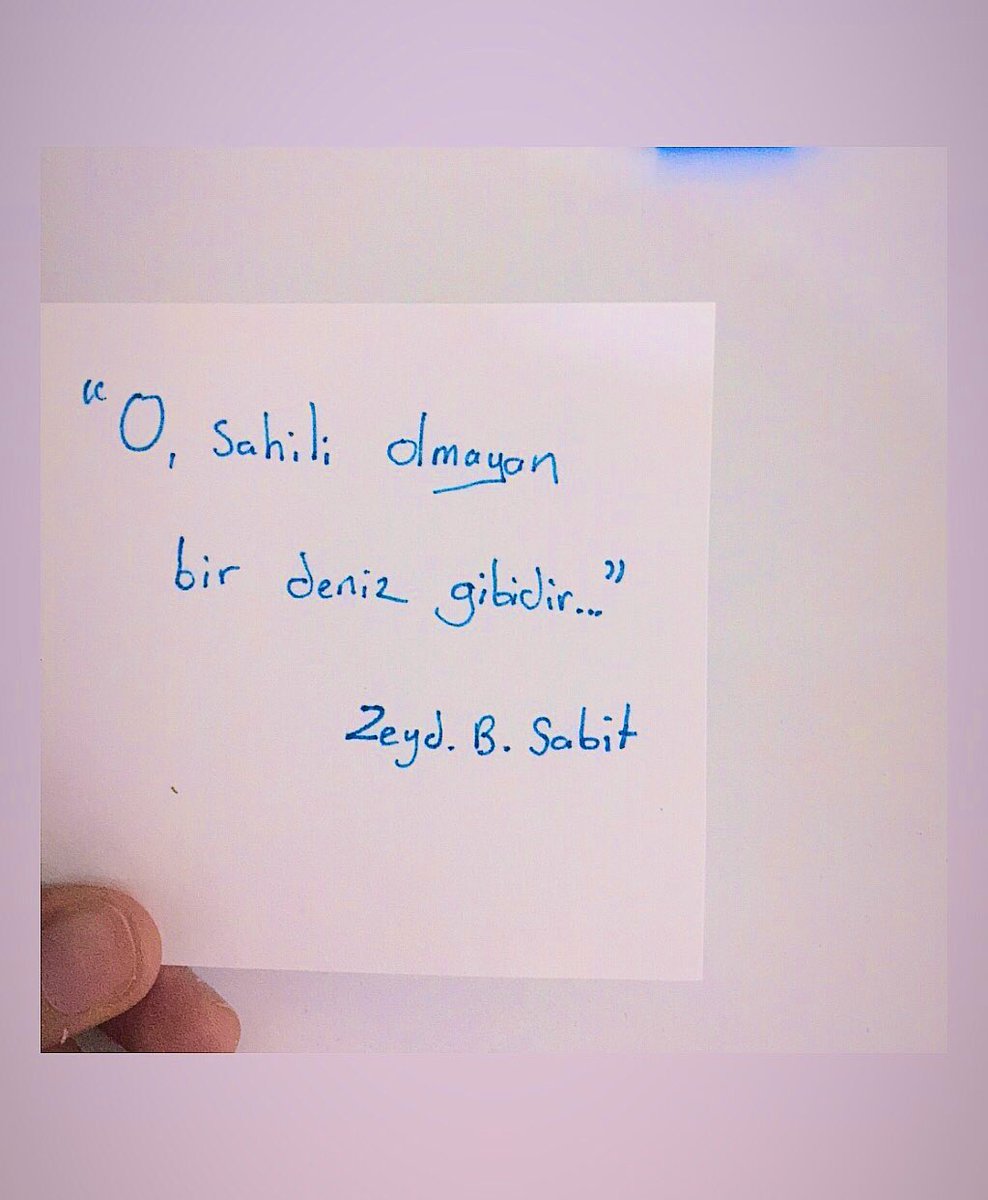 “O, sahili olmayan
bir deniz gibidir...”
Zeyd. B. Sabit